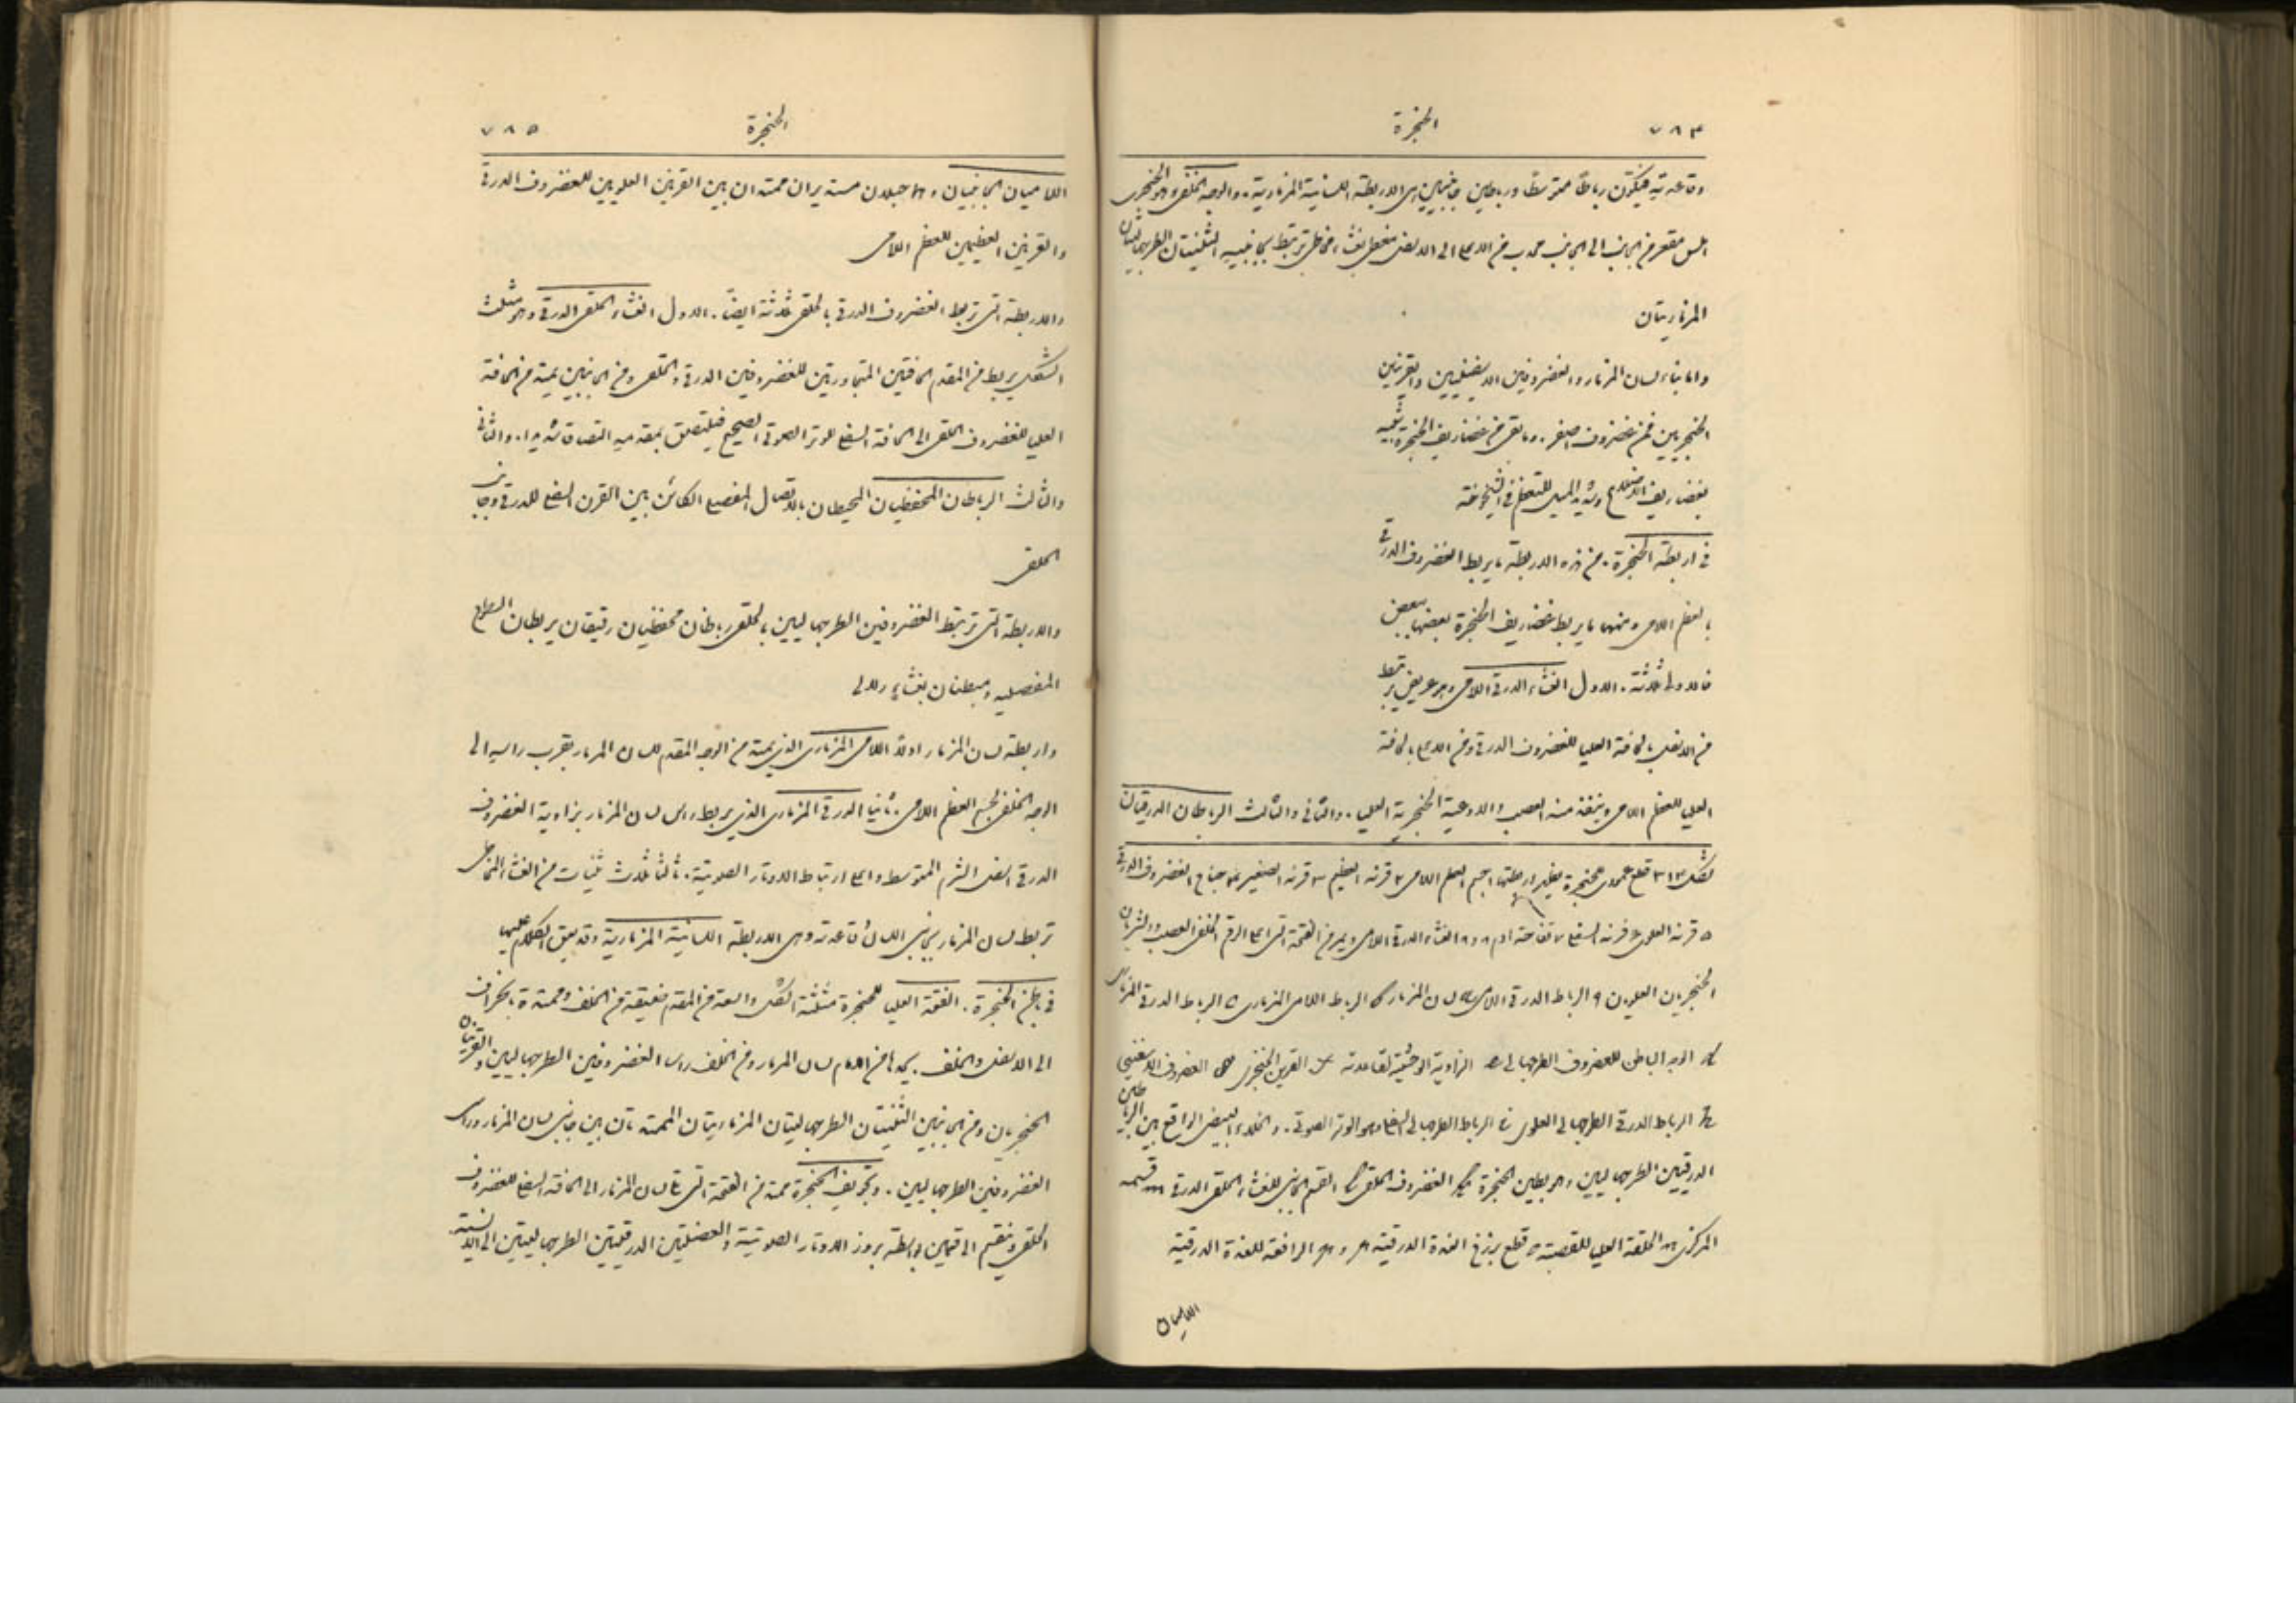 ٧٨٤
الحنجرة
وقاعدته فيتكون رباطًا متوسطًا ورباطين جانبيين هي الاربطة اللسانية المزمارية. والوجه الخلفي او الحنجري
املس مقعر من الجانب الى الجانب محدب من الاعلى الى الاسفل مغطى بغشاء مخاطي ترتبط بجانبيه الثنيتان الطرجهاليتان
المزماريتان
واما بناء لسان المزمار والغضروفين الاسفينيين والقرنين
الحنجريين فمن غضروف اصفر. وما بقي من غضاريف الحنجرة شبيه
بغضاريف الاضلاع وشديد الميل للتعظم في الشيخوخة
في اربطة الحنجرة. من هذه الاربطة ما يربط الغضروف الدرقي
بالعظم اللامي ومنها ما يربط غضاريف الحنجرة بعضها ببعض
فالاولى ثلاثة. الاول الغشاء الدرقي اللامي وهو عريض يرتبط
من الاسفل بالحافة العليا للغضروف الدرقي ومن الاعلى بالحافة
العليا للعظم اللامي وينفذ منه العصب والاوعية الحنجرية العليا. والثاني والثالث الرباطان الدرقيان
شكل ٣١٣ قطع عمودي للحنجرة يظهر اربطتها ١ جسم العظم اللامي ٢ قرنه العظيم ٣ قرنه الصغير ٤ جناح الغضروف الدرقي
٥ قرنه العلوي ٦ قرنه السفلي ٧ تفاحة ادم ٨ و٨ الغشاء الدرقي اللامي ويمر في الفتحة التي اعلى الرقم الخلفي العصب والشريان
الحنجريان العلويان ٩ الرباط الدرقي اللامي a لسان المزمار b الرباط اللامي المزماري c الرباط الدرقي المزماري
d الوجه الباطن للغضروف الطرجهالي e الزاوية الوحشية لقاعدته f القرين الحنجري g الغضروف الاسفيني
h الرباط الدرقي الطرجهالي العلوي i الرباط الطرجهالي السفلي وهو الوتر الصوتي. والخلاء البيضي الواقع بين الرباطين
الدرقيين الطرجهاليين هو بطين الحنجرة k الغضروف الحلقي l القسم الجانبي للغشاء الحلقي الدرقي m قسمه
المركزي n الحلقة العليا للقصبة o قطع برزخ الغدة الدرقية p و p الرافعة للغدة الدرقية
اللاميان
٧٨٥
الحنجرة
اللاميان الجانبيان وهما حبلان مستديران ممتدان بين القرنين العلويين للغضروف الدرقي
والقرنين العظيمين للعظم اللامي
والاربطة التي تربط الغضروف الدرقي بالحلقي ثلاثة ايضًا. الاول الغشاء الحلقي الدرقي وهو مثلث
الشكل يربط من المقدم الحافتين المتجاورتين للغضروفين الدرقي والحلقي ومن الجانبين يمتد من الحافة
العليا للغضروف الحلقي الى الحافة السفلى للوتر الصوتي الصحيح فيلتصق بمقدميه التصاقًا شديدا. والثاني
والثالث الرباطان المحفظيان المحيطان بالاتصال المفصلي الكائن بين القرن السفلي للدرقي وجانب
الحلقي
والاربطة التي تربط الغضروفين الطرجهاليين بالحلقي رباطان محفظيان رقيقان يربطان السطوح
المفصلية ومبطنان بغشاء زلالي
واربطة لسان المزمار اولًا اللامي المزماري الذي يمتد من الوجه المقدم للسان المزمار بقرب راسه الى
الوجه الخلفي لجسم العظم اللامي. ثانيا الدرقي المزماري الذي يربط راس لسان المزمار بزاوية الغضروف
الدرقي اسفل الشرم المتوسط واعلى ارتباط الاوتار الصوتية. ثالثًا ثلاث ثنيات من الغشاء المخاطي
تربط لسان المزمار بجانبي اللسان وقاعدته وهي الاربطة اللسانية المزمارية وقد سبق الكلام عليها
في باطن الحنجرة. الفتحة العليا للحنجرة مثلثة الشكل واسعة من المقدم ضيقة من الخلف وممتدة بانحراف
الى الاسفل والخلف. يحدها من الامام لسان المزمار ومن الخلف راسا الغضروفين الطرجهاليين والقرينان
الحنجريان ومن الجانبين الثنيتان الطرجهاليتان المزماريتان الممتدتان بين جانبي لسان المزمار وراسي
الغضروفين الطرجهاليين. وتجويف الحنجرة يمتد من الفتحة التي تحت لسان المزمار الى الحافة السفلى للغضروف
الحلقي وينقسم الى قسمين بواسطة بروز الاوتار الصوتية والعضلتين الدرقيتين الطرجهاليتين الى الانسية